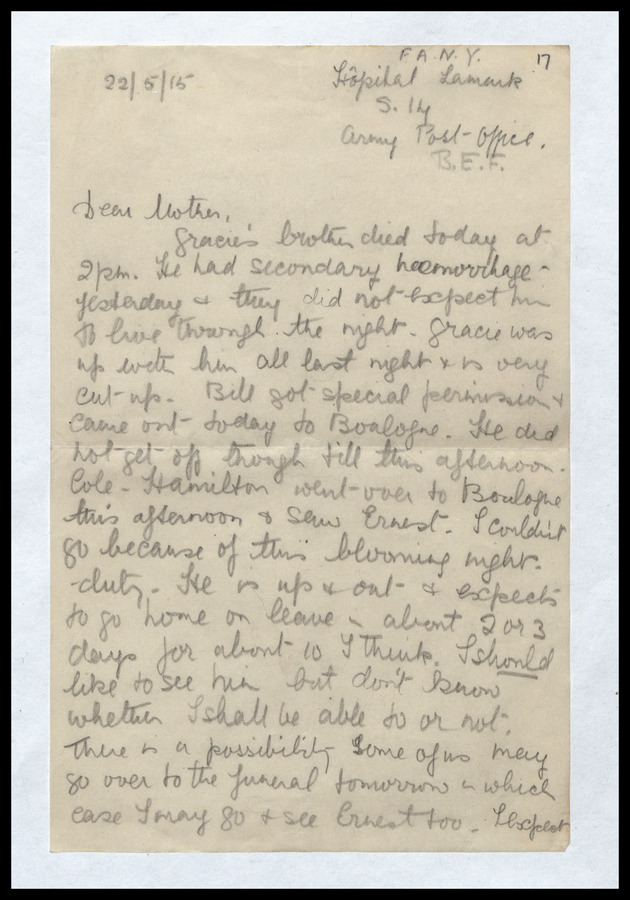 F.A.N.Y. 17
22/5/15 Hôpital Lamark
S. 14
Army Post-Office.
B.E.F.
Dear Mother,
Gracie's brother died today at
2pm. He had secondary haemorrhage -
yesterday & they did not expect him
to live through the night. Gracie was
up with him all last night & is very
cut-up. Bill got special permission &
came out today to Boulogne. He did
not get off though till this afternoon.
Cole-Hamilton went over to Boulogne
this afternoon & saw Ernest. I couldn't
go because of this blooming night-
-duty. He is up & out & expects
to go home on leave in about 2 or 3
days for about 10 I think. I should
like to see him but don't know
whether I shall be able to or not.
There is a possibility some of us may
go over to the funeral tomorrow in which
case I may go & see Ernest too. I expect